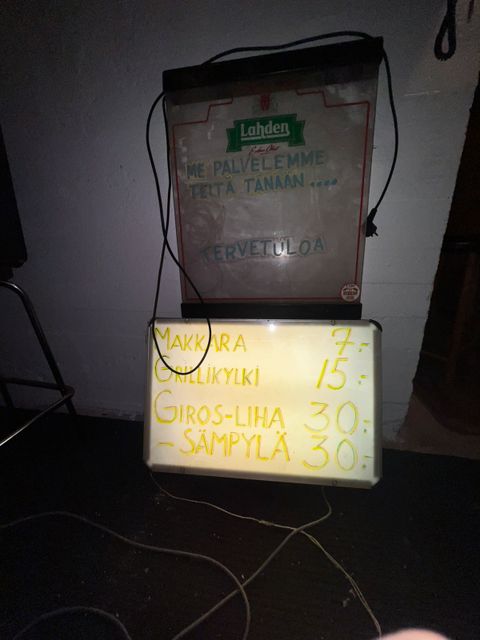 Lahden
ME PALVELEMME
TEITÄ TÄNÄÄN ....
TERVETULOA
MAKKARA 7.-
GRILLIKYLKI 15.-
GIROS-LIHA 30.-
- SÄMPYLÄ 30.-